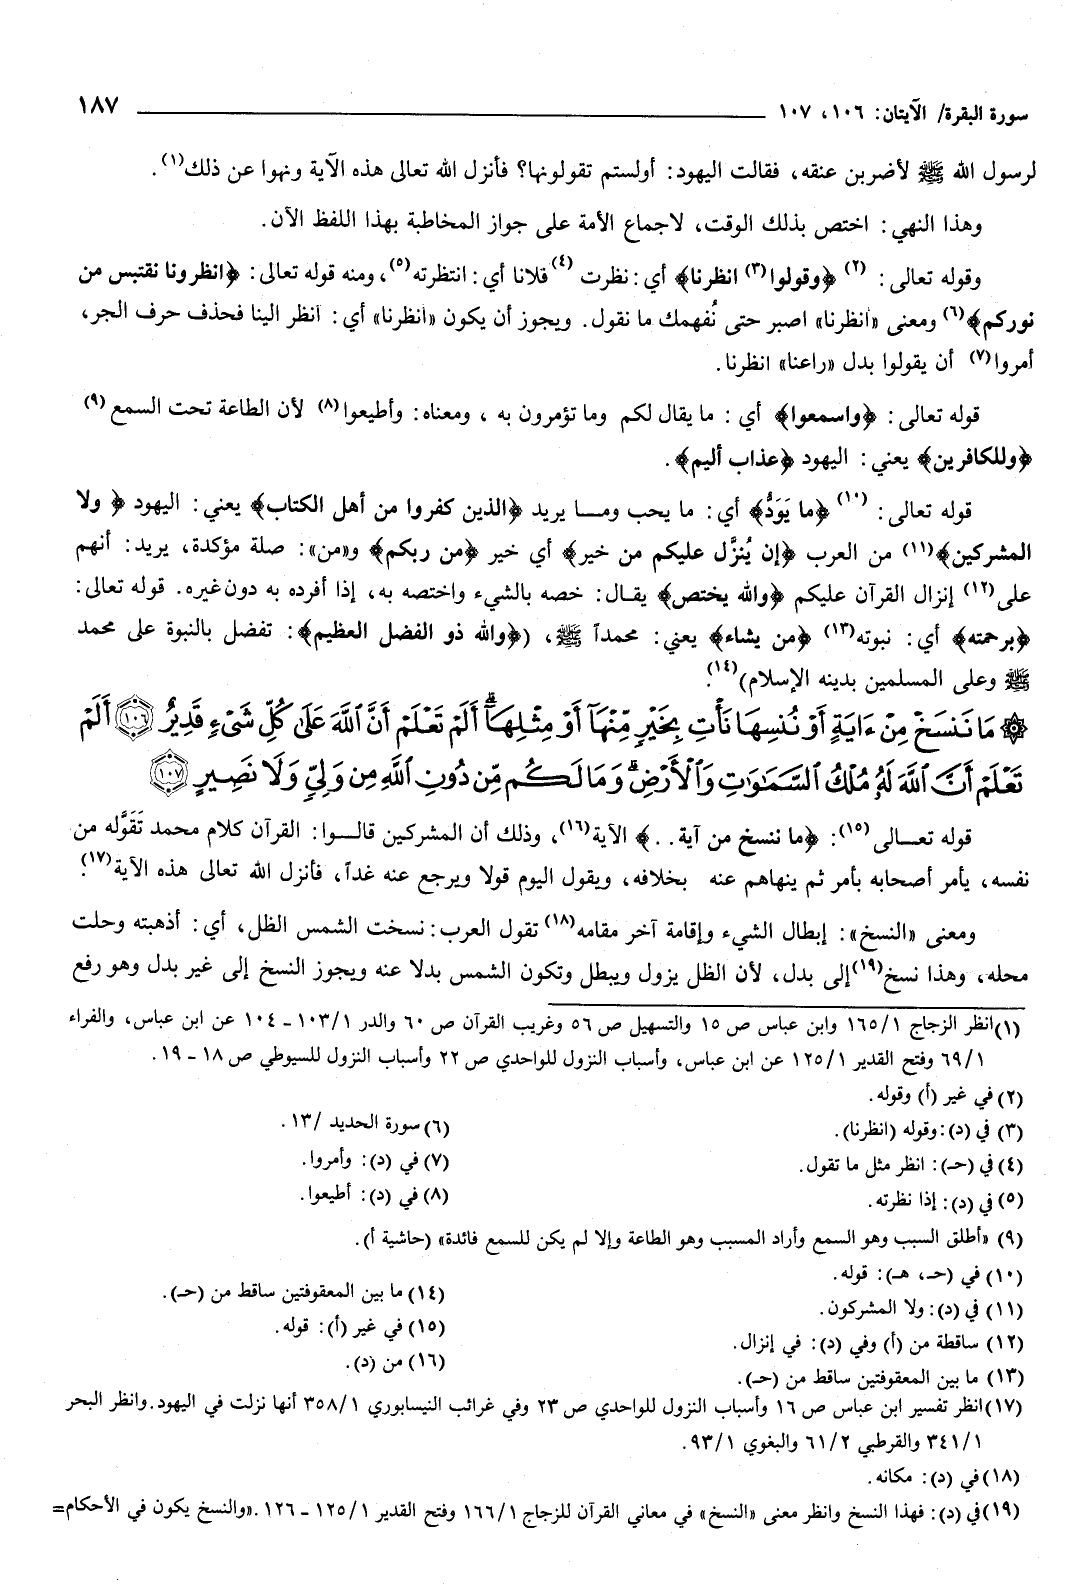 سورة البقرة/ الآيتان: ١٠٦، ١٠٧ ١٨٧
لرسول الله ﷺ لأضربن عنقه، فقالت اليهود: أولستم تقولونها؟ فأنزل الله تعالى هذه الآية ونهوا عن ذلك(١).
وهذا النهي: اختص بذلك الوقت، لاجماع الأمة على جواز المخاطبة بهذا اللفظ الآن.
وقوله تعالى: (٢) ﴿وقولوا(٣) انظرنا﴾ أي: نظرت (٤) فلانا أي: انتظرته(٥)، ومنه قوله تعالى: ﴿انظرونا نقتبس من
نوركم﴾(٦) ومعنى «انظرنا» اصبر حتى نُفهمك ما نقول. ويجوز أن يكون «انظرنا» أي: انظر الينا فحذف حرف الجر،
أمروا(٧) أن يقولوا بدل «راعنا» انظرنا.
قوله تعالى: ﴿واسمعوا﴾ أي: ما يقال لكم وما تؤمرون به، ومعناه: وأطيعوا(٨) لأن الطاعة تحت السمع (٩)
﴿وللكافرين﴾ يعني: اليهود ﴿عذاب أليم﴾.
قوله تعالى: (١٠) ﴿ما يَوَدُّ﴾ أي: ما يحب ومـا يريد ﴿الذين كفروا من أهل الكتاب﴾ يعني: اليهود ﴿ولا
المشركين﴾(١١) من العرب ﴿إن يُنزَّل عليكم من خير﴾ أي خير ﴿من ربكم﴾ و«من»: صلة مؤكدة، يريد: أنهم
على(١٢) إنزال القرآن عليكم ﴿والله يختص﴾ يقـال: خصه بالشيء واختصه به، إذا أفرده به دون غيره. قوله تعالى:
﴿برحمته﴾ أي: نبوته(١٣) ﴿من يشاء﴾ يعني: محمداً ﷺ، (﴿والله ذو الفضل العظيم﴾: تفضل بالنبوة على محمد
ﷺ وعلى المسلمين بدينه الإسلام)(١٤).
۞ مَا نَنسَخْ مِنْ ءَايَةٍ أَوْ نُنسِهَا نَأْتِ بِخَيْرٍ مِّنْهَآ أَوْ مِثْلِهَآ أَلَمْ تَعْلَمْ أَنَّ ٱللَّهَ عَلَىٰ كُلِّ شَىْءٍ قَدِيرٌ ١٠٦ أَلَمْ
تَعْلَمْ أَنَّ ٱللَّهَ لَهُۥ مُلْكُ ٱلسَّمَٰوَٰتِ وَٱلْأَرْضِ وَمَا لَكُم مِّن دُونِ ٱللَّهِ مِن وَلِيٍّ وَلَا نَصِيرٍ ١٠٧
قوله تعـالى(١٥): ﴿ما ننسخ من آية. . ﴾ الآية(١٦)، وذلك أن المشركين قالـوا: القرآن كلام محمد تَقَوَّله من
نفسه، يأمر أصحابه بأمر ثم ينهاهم عنه بخلافه، ويقول اليوم قولا ويرجع عنه غداً، فأنزل الله تعالى هذه الآية(١٧).
ومعنى «النسخ»: إبطال الشيء وإقامة آخر مقامه(١٨) تقول العرب: نسخت الشمس الظل، أي: أذهبته وحلت
محله، وهذا نسخ(١٩) إلى بدل، لأن الظل يزول ويبطل وتكون الشمس بدلا عنه ويجوز النسخ إلى غير بدل وهو رفع
(١) انظر الزجاج ١/١٦٥ وابن عباس ص ١٥ والتسهيل ص ٥٦ وغريب القرآن ص ٦٠ والدر ١/١٠٣ ـ ١٠٤ عن ابن عباس، والفراء
١/٦٩ وفتح القدير ١/١٢٥ عن ابن عباس، وأسباب النزول للواحدي ص ٢٢ وأسباب النزول للسيوطي ص ١٨ ـ ١٩.
(٢) في غير (أ) وقوله.
(٣) في (د): وقوله (انظرنا).
(٤) في (حـ): انظر مثل ما تقول.
(٥) في (د): إذا نظرته.
(٦) سورة الحديد /١٣.
(٧) في (د): وأمروا.
(٨) في (د): أطيعوا.
(٩) «أطلق السبب وهو السمع وأراد المسبب وهو الطاعة وإلا لم يكن للسمع فائدة» (حاشية أ).
(١٠) في (حـ، هـ): قوله.
(١١) في (د): ولا المشركون.
(١٢) ساقطة من (أ) وفي (د): في إنزال.
(١٣) ما بين المعقوفتين ساقط من (حـ).
(١٤) ما بين المعقوفتين ساقط من (حـ).
(١٥) في غير (أ): قوله.
(١٦) من (د).
(١٧) انظر تفسير ابن عباس ص ١٦ وأسباب النزول للواحدي ص ٢٣ وفي غرائب النيسابوري ١/٣٥٨ أنها نزلت في اليهود. وانظر البحر
١/٣٤١ والقرطبي ٢/٦١ والبغوي ١/٩٣.
(١٨) في (د): مكانه.
(١٩) في (د): فهذا النسخ وانظر معنى «النسخ» في معاني القرآن للزجاج ١/١٦٦ وفتح القدير ١/١٢٥ ـ ١٢٦. «والنسخ يكون في الأحكام=